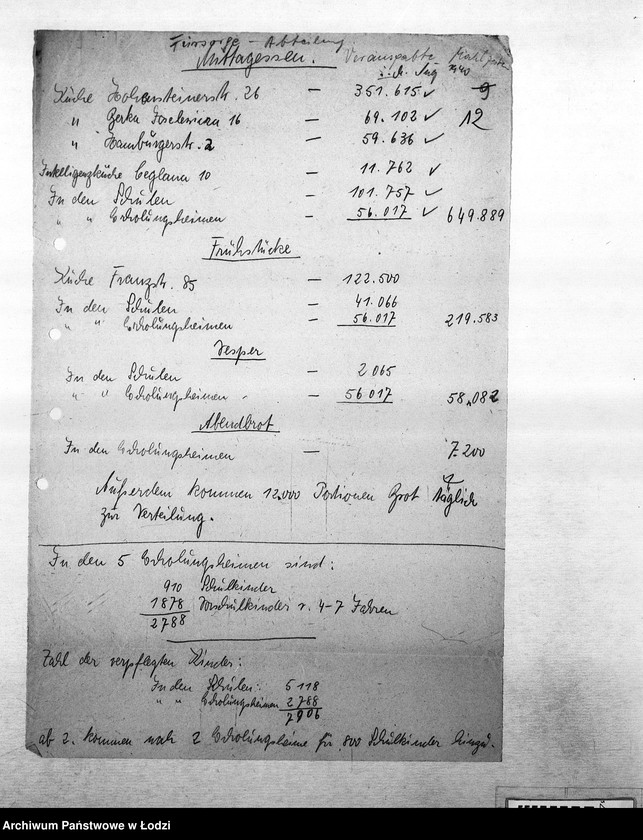 Fürsorge - Abteilung
Mittagessen. Verausgabte Mahlzeiten
i. M. Aug 1940
Küche Hohensteinerstr. 26 — 351.615 ✓ 9
" Berka Joselewicza 16 — 69.102 ✓ 12
" Hamburgerstr. 2 — 59.636 ✓
Intelligenzküche Ceglana 10 — 11.762 ✓
In den Schulen — 101.757 ✓
" " Erholungsheimen — 56.017 ✓ 649.889
Frühstücke
Küche Franzstr. 85 — 122.500
In den Schulen — 41.066
" " Erholungsheimen — 56.017 219.583
Vesper
In den Schulen — 2065
" " Erholungsheimen - — 56017 58.082
Abendbrot
In den Erholungsheimen — 7.200
Außerdem kommen 12,000 Portionen Brot täglich
zur Verteilung.
In den 5 Erholungsheimen sind:
910 Schulkinder
1878 Vorschulkinder v. 4-7 Jahren
2788
Zahl der verpflegten Kinder:
In den Schulen: 5118
" " Erholungsheimen 2788
7906
ab 2. kommen noch 2 Erholungsheime für 800 Schulkinder hinzu.
Archiwum Państwowe w Łodzi